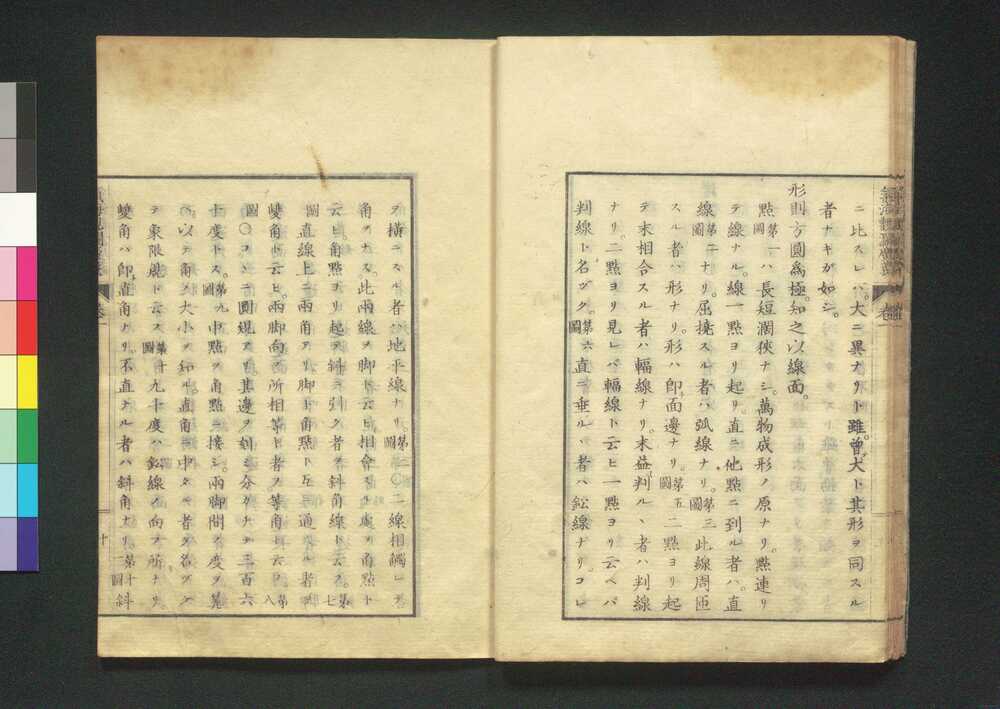 ニ比スレハ。大ニ異ナリト雖。曾大ト其形ヲ同スル
者ナキガ如シ。
形則方圓爲極。知之以線面。
點第一圖ハ長短濶狹ナシ。萬物成形ノ原ナリ。點連リ
テ線ナル。線一點ヨリ起リ。直ニ他點ニ到ル者ハ。直
線第二圖ナリ。屈撓スル者ハ弧線ナリ。第三圖此線周匝
スル者ハ形ナリ。形ハ即面邊ナリ。第五圖二點ヨリ起
テ末相合スル者ハ輻線ナリ。末益判ルヽ者ハ判線
ナリ。二點ヨリ見レバ輻線ト云ヒ一點ヨリ云ヘバ
判線ト名ヅク。第六圖直ニ垂ルヽ者ハ鉛線ナリ。コレ
ヲ橫ニスル者ハ地平線ナリ。第二圖〇二線相觸レテ
角ヲナス。此兩線ヲ脚ト云ヒ相會スル處ヲ角點ト
云ヒ角點ヨリ起テ斜ニ引ク者ヲ斜角線ト云フ。第七
圖直線上ニ兩角アリ脚ト角點ト互ニ通スル者ヲ
雙角ト云ヒ。兩脚向フ所相等ト者ヲ。等角ト云フ。第八
圖〇コンニ圓規アリ其邊ヲ刻ミ分ケテ三百六
十度トス。第九圖中點ヲ角點ニ接シ。兩脚間ノ度ヲ筭
ヘ以テ角ノ大小ヲ知ル。直角ニ中タル者ヲ名ヅケ
テ象限儀ト云ス。第十圖九十度ハ鉛線ノ向フ所ナリ
雙角ハ即直角ナリ。不直ナル者ハ斜角ナリ。第十一圖斜
卷一
十